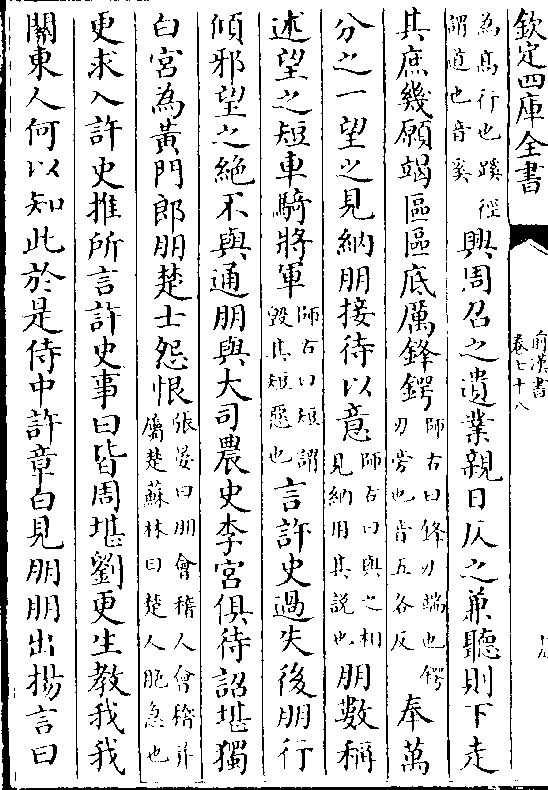 欽定四庫全書
前漢書
卷七十八
為髙行也蹊徑
謂道也音奚
興周召之遺業親日仄之兼聽則下走
其庶幾願竭區區底厲鋒鍔
師古曰鋒刃端也鍔
刃旁也音五各反
奉萬
分之一望之見納朋接待以意
師古曰與之相
見納用其説也
朋數稱
述望之短車騎將軍
師古曰短謂
毁其短惡也
言許史過失後朋行
傾邪望之絶不與通朋與大司農史李宫俱待詔堪獨
白宫為黄門郎朋楚士怨恨
張晏曰朋會稽人會稽并
屬楚蘇林曰楚人脃急也
更求入許史推所言許史事曰皆周堪劉更生教我我
關東人何以知此於是侍中許章白見朋朋出揚言曰